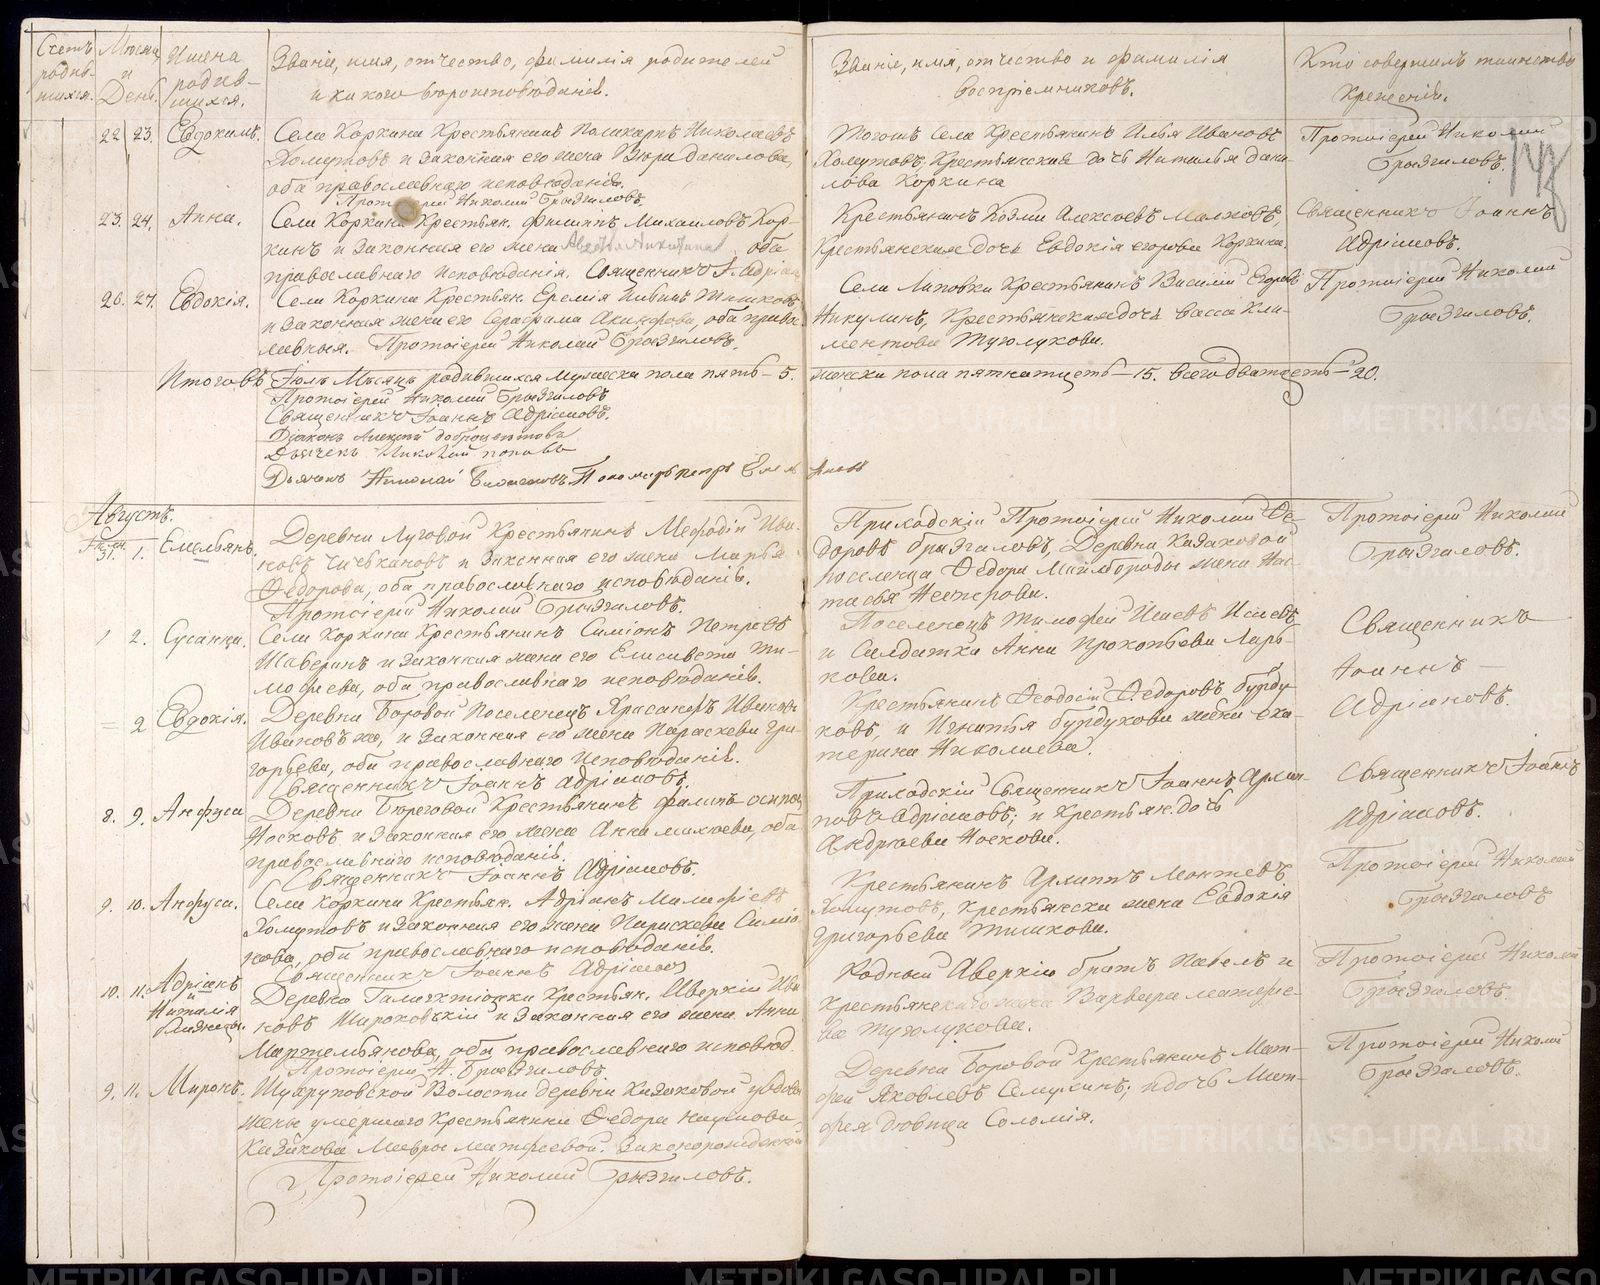 Счетъ родив-шихся.
Мѣсяцъ и День.
Имена родив-шихся.
Званіе, имя, отчество, фамилія родителей
и какого вѣроисповѣданія.
Званіе, имя, отчество и фамилія
воспріемниковъ.
Кто совершалъ таинство
крещенія.
22 23. Евдокимъ. Села Коркина Крестьянинъ Поликарпъ Николаевъ
Хомутовъ и законная его жена Вѣра Данилова,
оба православнаго исповѣданія.
Протоіерей Николай Брызгаловъ.
Тогожъ села Крестьянинъ Илья Ивановъ
Хомутовъ, Крестьянская дочь Наталья Дани-
лова Коркина
Протоіерей Николай
Брызгаловъ.
23. 24. Анна. Села Коркина Крестьян. Филиппъ Михайловъ Кор-
кинъ и законная его жена оба
православнаго исповѣданія. Священникъ І. Адріан
Крестьянинъ Козма Алексѣевъ Малковъ,
Крестьянская дочь Евдокія Егорова Коркина.
Священникъ Іоаннъ
Адріановъ.
26. 27. Евдокія. Села Коркина Крестьян. Еремія Ивановъ Тишковъ
и законная жена его Серафима Акинфова, оба право-
славныя. Протоіерей Николай Брызгаловъ.
Села Липовки Крестьянинъ Василій Егоровъ
Никулинъ, Крестьянская дочь Васса Кли-
ментова Туголукова.
Протоіерей Николай
Брызгаловъ.
Итого въ Іюлѣ Мѣсяцѣ родившихся мужеска пола пять - 5. женска пола пятнатцеть - 15. Всего дватцеть - 20.
Протоіерей Николай Брызгаловъ
Священникъ Іоаннъ Адріановъ.
Діаконъ Алексѣй
Дьячекъ Николай Поповъ
Дьячекъ Николай Пономарь Петръ
Августъ.
31. 1. Емельянъ. Деревни Луговой Крестьянинъ Мефодій Ива-
новъ Чигвинцовъ и законная его жена Марья
Федорова, оба православнаго исповѣданія.
Протоіерей Николай Брызгаловъ.
Приходскій Протоіерей Николай Фе-
доровъ Брызгаловъ, Деревни Казаковой
поселенца Федора Майбороды жена Нас-
тасья Нестерова.
Протоіерей Николай
Брызгаловъ.
1 2. Сусанна. Села Коркина Крестьянинъ Симіонъ Петровъ
Шаберинъ и законная жена его Елисавета Ти-
мофеева, оба православнаго исповѣданія.
Поселенецъ Тимофей Исаевъ Исаевъ
и Салдатка Анна Прокопьева Ларь-
кова.
Священникъ
Іоаннъ
Адріановъ.
= 2 Евдокія. Деревни Боровой Поселенецъ Хрисанфъ Ивановъ
Ивановъ же, и законная его жена Параскева Гри-
горьева, оба православнаго исповѣданія.
Священникъ Іоаннъ Адріановъ.
Крестьянинъ Феодосій Федоровъ Бурду-
ковъ, и Игнатья Бурдукова жена Ека-
терина Николаева.
8. 9. Анфуса Деревни Береговой Крестьянинъ Филипъ Осипов
Носковъ и законная его жена Анна Михѣева, оба
православнаго исповѣданія.
Священникъ Іоаннъ Адріановъ.
Приходскій Священникъ Іоаннъ Архип-
повъ Адріановъ; и Крестьян. дочь
Андреева Носкова.
Священникъ Іоаннъ
Адріановъ.
9. 10. Анфуса. Села Коркина Крестьян. Адріанъ Малафѣевъ
Хомутовъ и законная его жена Параскева Симіо-
нова, оба православнаго исповѣданія.
Священникъ Іоаннъ Адріановъ
Крестьянинъ Архиппъ
Хомутовъ, Крестьянска жена Евдокія
Григорьева Тишкова.
Протоіерей Николай
Брызгаловъ
10. 11. Адріанъ и Наталія близнецы. Деревни Крестьян. Аверкій Ива-
новъ Широковскій и законная его жена Анна
Мартемьянова, оба православнаго исповѣд.
Протоіерей Н. Брызгаловъ
Родной Аверкію братъ Павелъ и
крестьянскаго жена Варвара Матфие-
ва Туголукова.
Протоіерей Николай
Брызгаловъ.
9. 11. Миронъ. Шухруповской Волости деревни Казаковой вдовы
жены умершаго Крестьянина Федора Наумова
Казакова Мавры Матфеевой. Законорожденный
Протоіерей Николай Брызгаловъ.
Деревни Боровой Крестьянинъ Мат-
фей Яковлевъ Семухинъ; и дочь Мат-
фея дѣвица Соломія.
Протоіерей Николай
Брызгаловъ.
METRIKI.GASO-URAL.RU